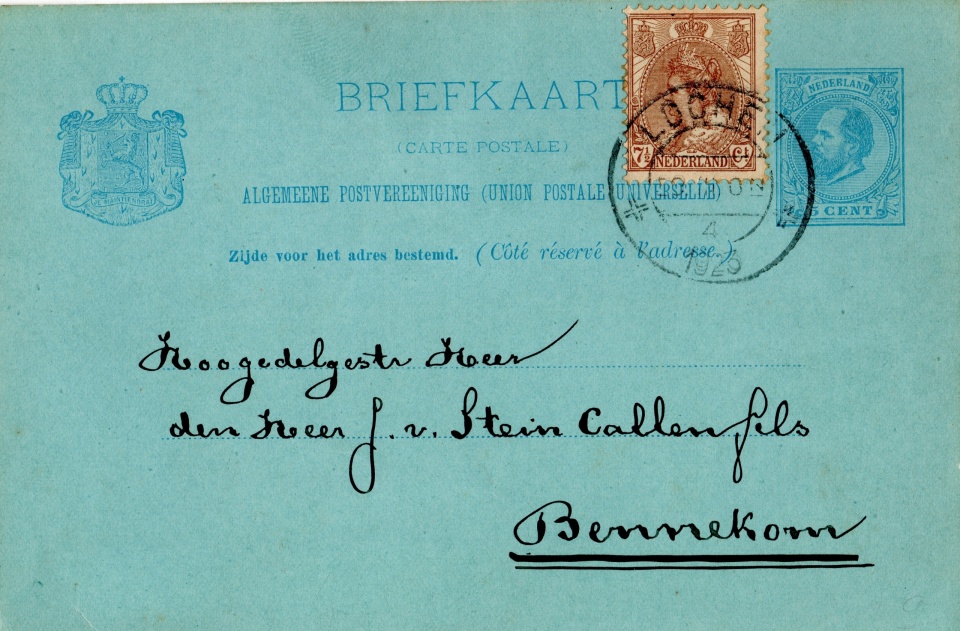 BRIEFKAART
(CARTE POSTALE)
ALGEMEENE POSTVEREENIGING (UNION POSTALE UNIVERSELLE)
Zijde voor het adres bestemd. (Côté réservé à l'adresse.)
JE MAINTIENDRAI
7½ NEDERLAND Ct
LOCHEM
4
1923
NEDERLAND
5 CENT
Hoogedelgestr Heer
den Heer J. v. Stein Callenfels
Bennekom